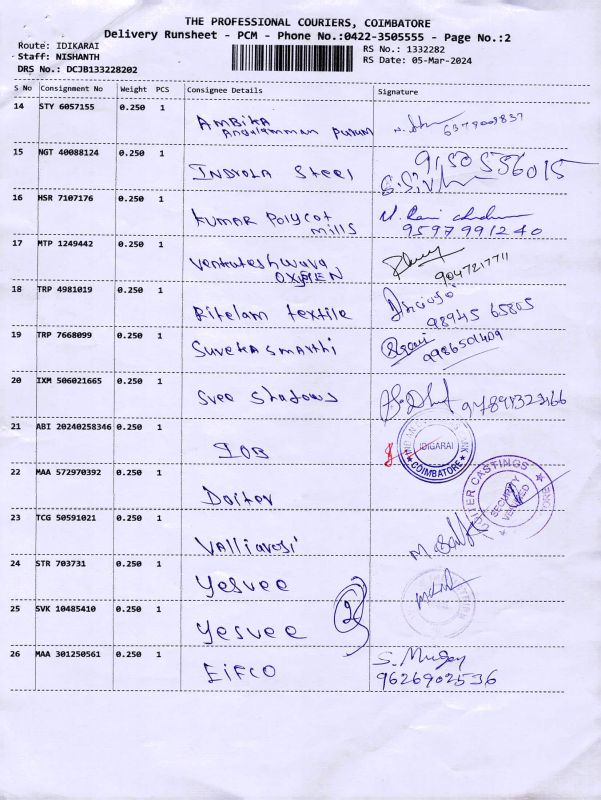 THE PROFESSIONAL COURIERS, COIMBATORE
Delivery Runsheet - PCM - Phone No.:0422-3505555 - Page No.:2
Route: IDIKARAI
RS No.: 1332282
Staff: NISHANTH
RS Date: 05-Mar-2024
DRS No.: DCJB133228202
S No Consignment No Weight PCS Consignee Details Signature
14 STY 6057155 0.250 1
AMBIKA
Andalamman Puram
6379009837
15 NGT 40088124 0.250 1
INDROLA Steel
9150556015
16 HSR 7107176 0.250 1
KUMAR POLYCOT
mills
9597991240
17 MTP 1249442 0.250 1
Venkateshwara
OXYGEN
9047217711
18 TRP 4981019 0.250 1
Ritelam textile
98945 65805
19 TRP 7668099 0.250 1
Suveka smarthi
9986501409
20 IXM 506021665 0.250 1
Sree Shadows
21 ABI 20240258346 0.250 1
IOB
IDIGARAI
COIMBATORE
22 MAA 572970392 0.250 1
Doiter
CASTINGS
SECURITY
23 TCG 50591021 0.250 1
Valliarasi
24 STR 703731 0.250 1
Yesvee
25 SVK 10485410 0.250 1
Yesvee
2
26 MAA 301250561 0.250 1
EIFCO
9626902536